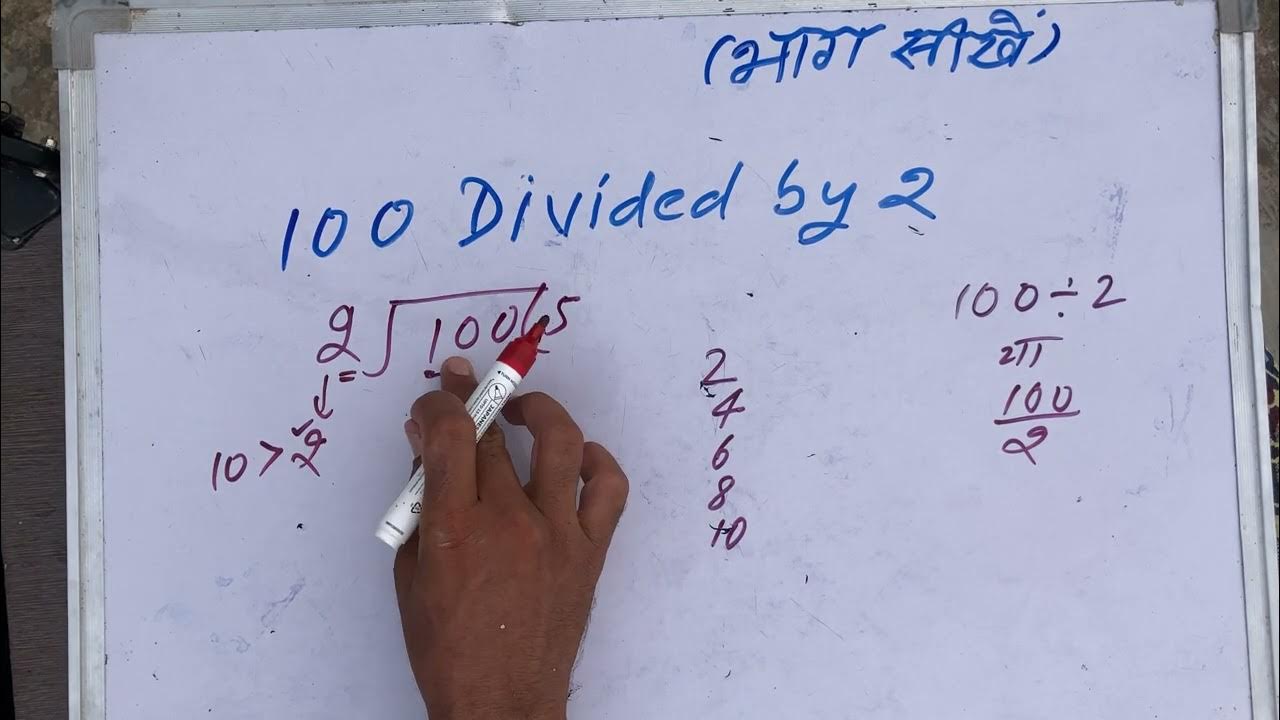 (भाग सीखें)
100 Divided by 2
2 100 5
10 > 2
2
4
6
8
10
100 ÷ 2
100
2